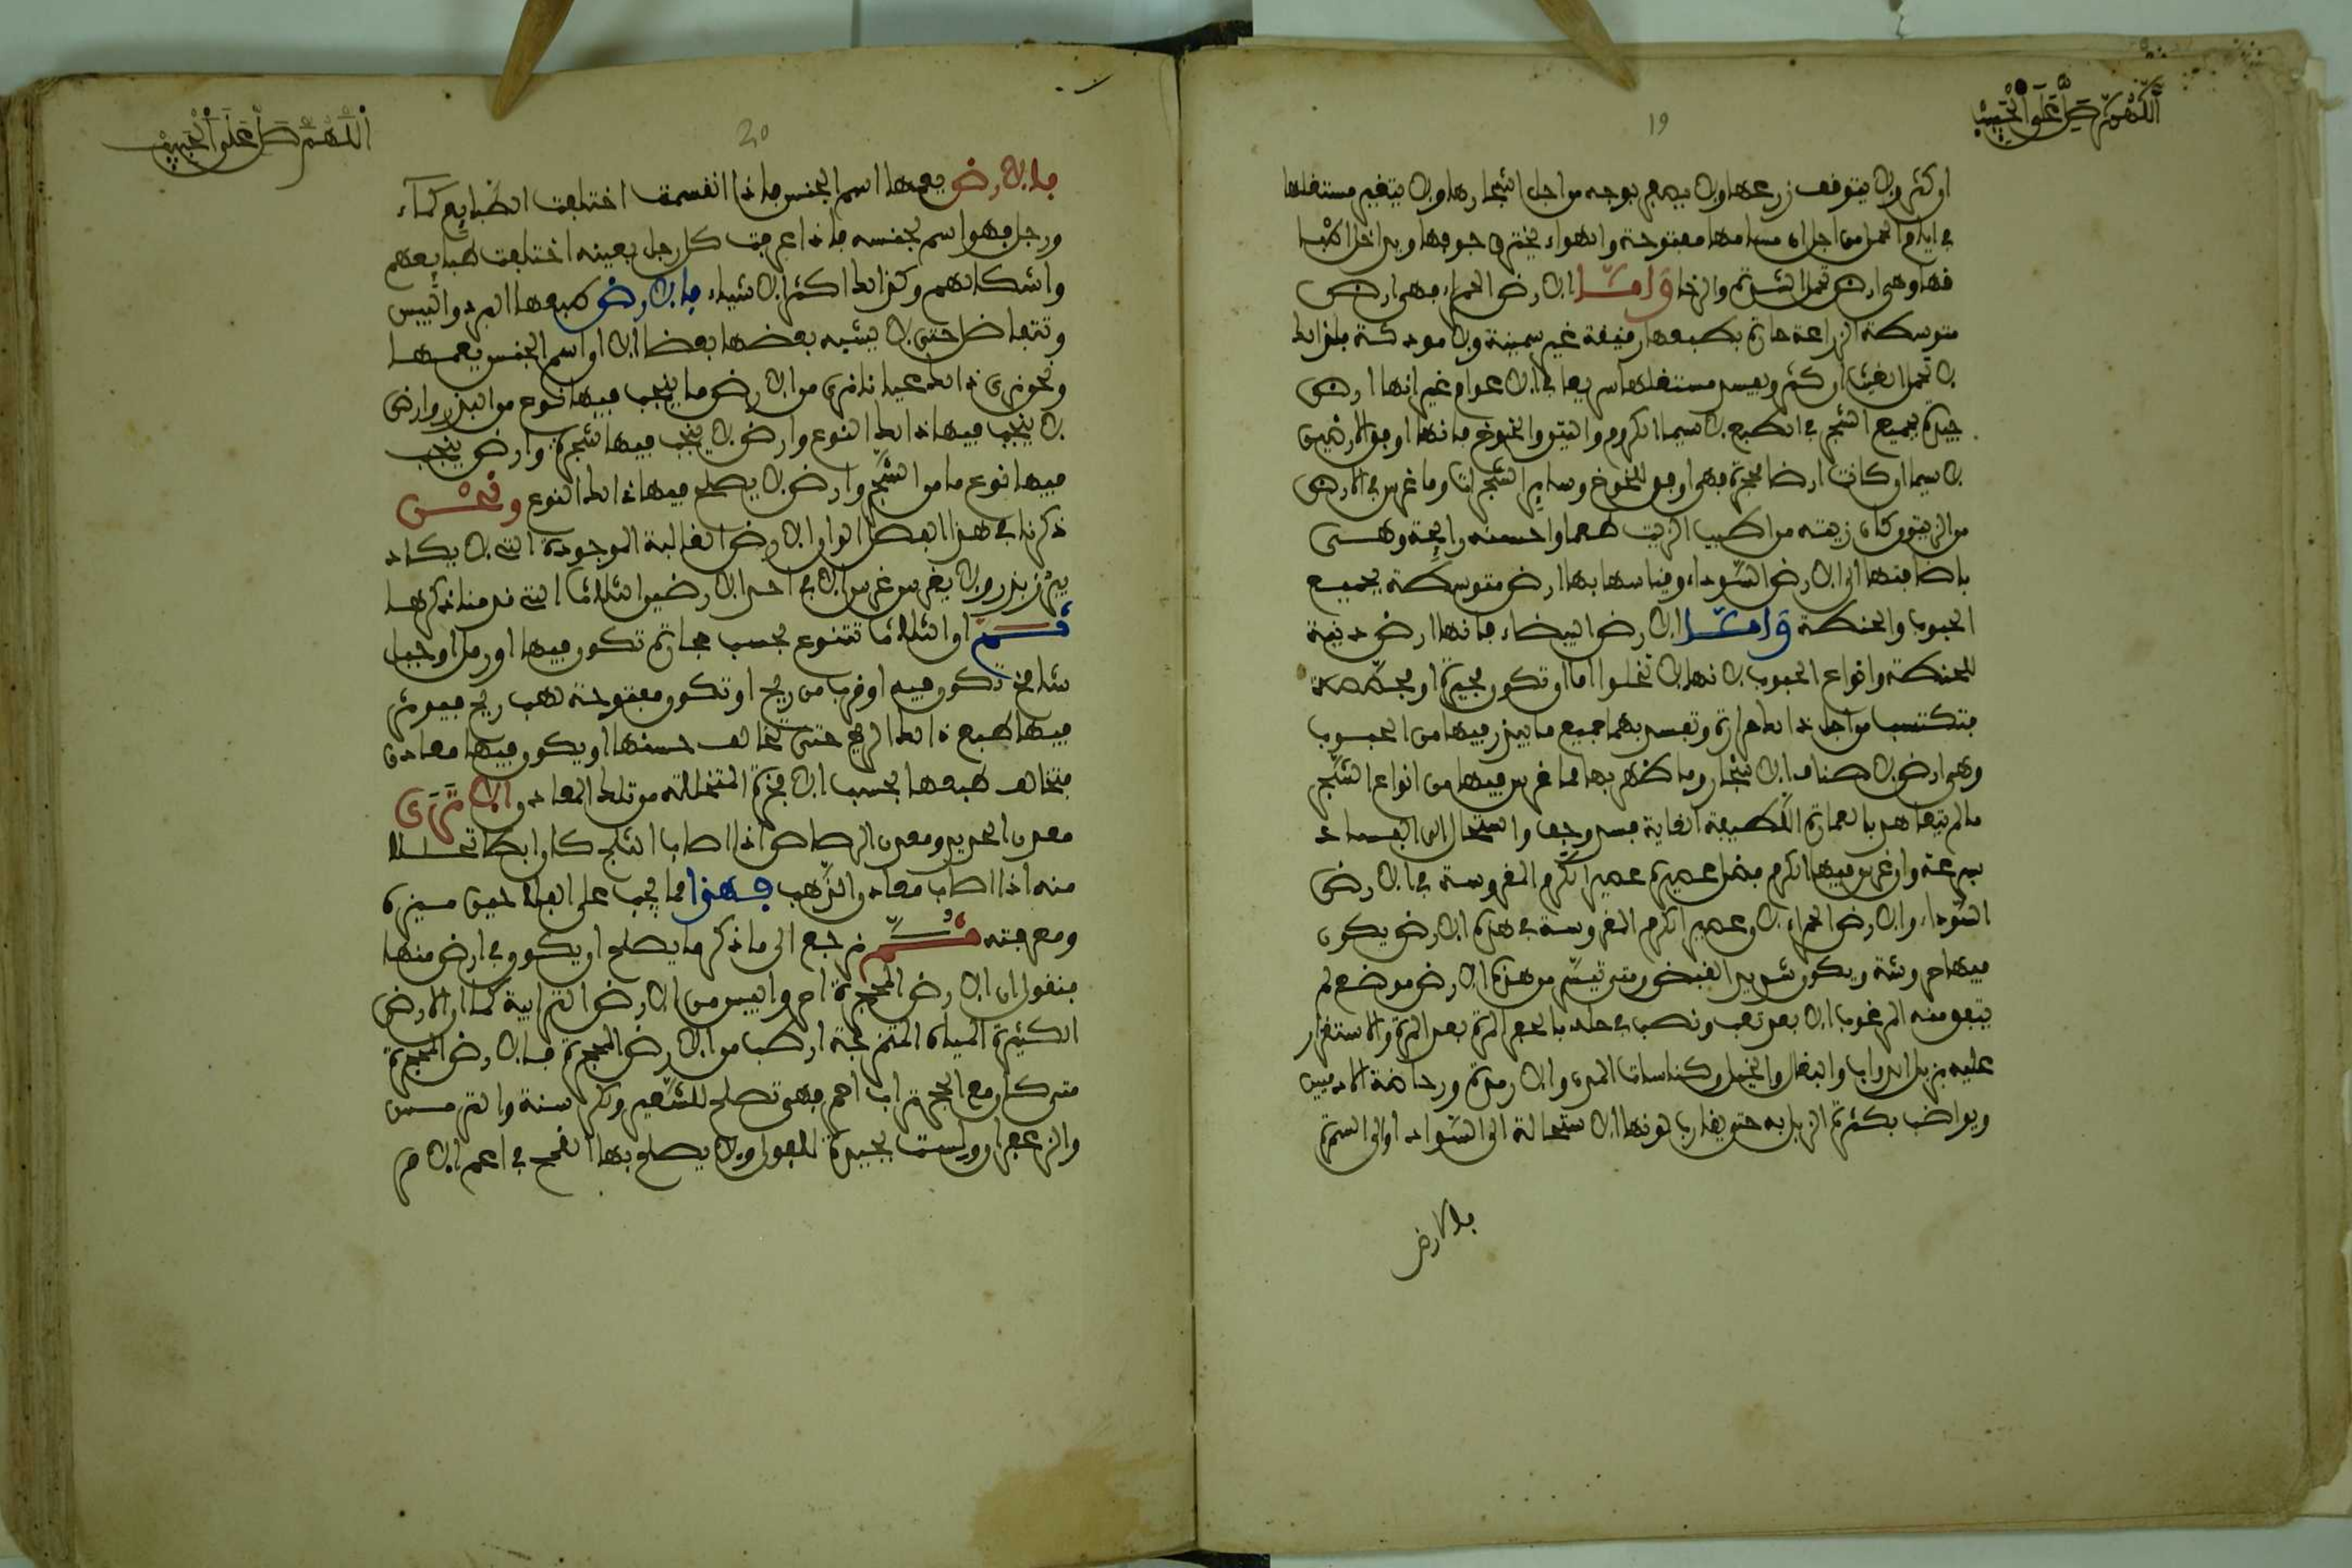 اللهم صل على الحبيب
19
او كثر ولا يتوقف زرعها ولا يدفع بوجه من اجل اشجارها ولا يتغير مستغلها
في ايام الحر من اجل ان مسامها مفتوحة والهواء يخترق جوفها ويداخل
فها وهي ارض تحمل الشدة والرخا وامّا الارض الحمراء فهي ارض
متوسطة الزراعة حارة بطبعها رقيقة غير سمينة ولا مودكة فلذلك
لا تحمل الغيث ان كثر ويفسد مستغلها سريعا في الاعوام غير انها ارض
جيدة لجميع الشجر في الطبع لا سيما الكروم والتين والخوخ فانها اوفق الارضين
لا سيما ان كانت ارضا محجرة فهي اوفق للخوخ وساير الشجرات وما غرس في الارض
من الزيتون كان زيته من اطيب الزيت طعما واحسنه رايحة وهي
باضافتها الى الارض السوداء وقياسها بها ارض متوسطة لجميع
الحبوب والحنطة وامّا الارض البيضاء فانها ارض دنية
للحنطة وانواع الحبوب لانها لا تخلوا اما ان تكون مجيرة او مجصصة
فتكتسب من اجل ذالك حرارة وتفسد بها جميع ما يبذر فيها من الحبوب
وهي ارض لا صناف الاشجار وما ظهر بها مما غرس فيها من انواع الشجر
ما لم يتعاهد بالعمارة اللطيفة الغاية فسد وجف واستحال الى الفساد
بسرعة وان غرس فيها الكرم فضل عصيره عصير الكرم المغروسة في الارض
السوداء والارض الحمراء لان عصير الكرم المغروسة في هذه الارض يكون
فيها حروشة ويكون شديد القبض ومتى تيسّر من هذه الارض موضع لم
يتفق منه المرغوب الا بعد تعب ونصب في حاله بالحفر المرة بعد المرة والاستغزار
عليه بزبل الدواب والبغال والخيل وكناسات المدن والارمدة ورحاضة الادميين
ويواضب بكثرة الزبل به حتى يقارب لونها الاستحالة الى السواد او الى السمرة
فالارض
اللهم صل على الحبيب
20
فالارض يعمها اسم الجنس فاذا انقسمت اختلفت الطبايع كماء
ورجل فهو اسم لجنسه فاذا عرفت كل رجل بعينه اختلفت طبايعهم
واشكالهم وكذالك اكثر الاشياء فالارض طبعها البرد واليبس
وتتفاضل حتى لا يشبه بعضها بعضا الا ان اسم الجنس يعمها
ونحن نرى ذالك عيانا نرى من الارض ما ينجب فيها نوع من البذر وارض
لا ينجب فيها ذالك النوع وارض لا ينجب فيها شجرة وارض ينجب
فيها نوع ما من الشجر وارض لا يصلح فيها ذالك النوع ونحن
ذكرنا في هذا الفصل الوان الارض الغالبة الموجودة التي لا يكاد
يبذر بذر ولا يغرس غرس الا في احد الارضين الثلاث التي قدمنا ذكرها
ثم ان الثلاث تتنوع بحسب حجارة تكون فيها او رمل او جبل
شامخ تكون فيه او قرب من ريح او تكون مفتوحة لهب ريح فيوثر
فيها طبع ذالك الريح حتى تخالف جنسها او يكون فيها معادن
فتخالف طبعها بحسب الابخرة المتخللة من تلك المعادن الا ترى
معدن الحديد ومعدن الرصاص اذا اصاب الثلج كان ابطا تحللا
منه اذا اصاب معادن الذهب فهذا مما يجب على الفلاحين ميزه
ومعرفته ثم نرجع الى ما ذكر ما يصلح ان يكون في ارض منها
فنقول ان الارض المحجرة احر وايبس من الارض الترابية كما ان الارض
الكثيرة المياه المتزعجة ارطب من الارض المحجرة فالارض المحجرة
متى كان مع الحجر تراب احمر فهو تصلح للشعير والكرسنة والترمس
والزعفران وليست بجيدة للفول ولا يصلح بها القمح في اعم الامر